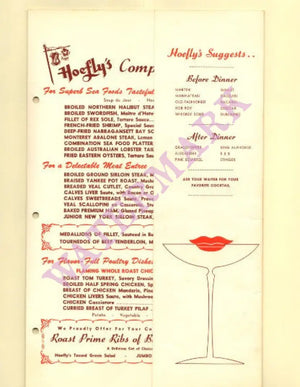 Hoefly's Comp
For Superb Sea Foods Tasteful
BROILED NORTHERN HALIBUT STEA
BROILED SWORDFISH, Maitre d'Hote
FILLET OF REX SOLE, Tartare Sauce
FRENCH-FRIED SHRIMP, Special
DEEP-FRIED NARRAGANSETT BAY SC
MONTEREY ABALONE STEAK, Lemon
COMBINATION SEA FOOD PLATTER
BROILED AUSTRALIAN LOBSTER TAI
FRIED EASTERN OYSTERS, Tartare Sau
For a Delectable Meat Entree
BROILED GROUND SIRLOIN STEAK, M
BRAISED YANKEE POT ROAST, Mush
BREADED VEAL CUTLET, Country Gra
CALVES LIVER Saute, with Bacon or
CALVES SWEETBREADS Saute, Fres
VEAL SCALLOPINI
BAKED PREMIUM HAM, Glazed
JUNIOR NEW YORK SIRLOIN STEAK,
MEDALLIONS OF FILLET, Sauteed in B
TOURNEDOS OF BEEF TENDERLOIN, M
For Flavor-Full Poultry Dishes
FLAMING WHOLE ROAST CHIC
ROAST TOM TURKEY, Savory Dressin
BROILED HALF SPRING CHICKEN, Sp
BREAST OF CHICKEN Mandarin,
CHICKEN LIVERS Saute, with Mushroo
CHICKEN Cacciatore
CURRIED BREAST OF TURKEY PILAF
Potato Vegetable
We Proudly Offer For Your
Roast Prime Ribs of B
Hoefly's Tossed Green Salad - JUMBO
Hoefly's Suggests..
Before Dinner
MARTINI
MANHATTAN
OLD-FASHIONED
ROB ROY
WHISKEY SOUR
After Dinner
STINGER
ASK YOUR WAITER FOR YOUR
FAVORITE COCKTAIL
WATERMARK